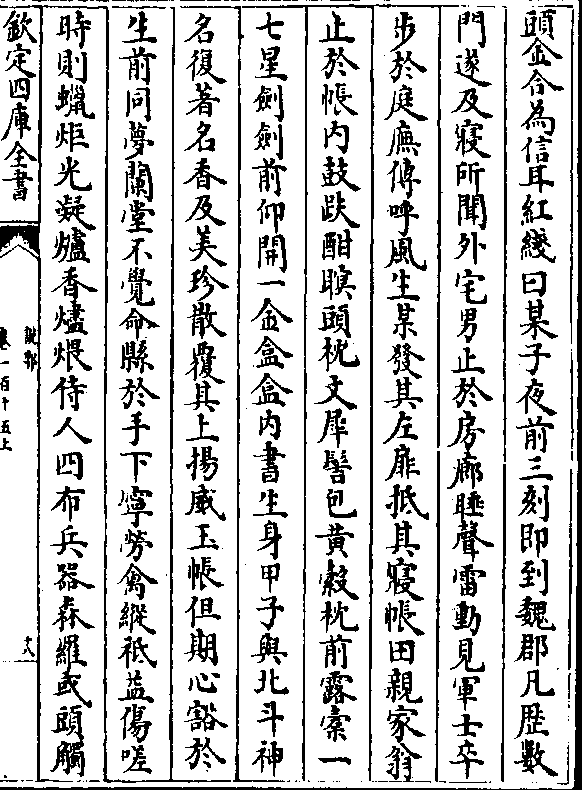 頭金合為信耳紅綫曰某子夜前三刻即到魏郡凡歴數
門遂及寢所聞外宅男止於房廊睡聲雷動見軍士卒
步於庭廡傳呼風生某發其左扉抵其寢帳田親家翁
止於帳内鼓趺酣瞑頭枕文犀髻包黄縠枕前露橐一
七星劍劍前仰開一金盒盒内書生身甲子與北斗神
名復著名香及美珍散覆其上揚威玉帳但期心豁於
生前同夢蘭堂不覺命縣於手下寧勞禽縱祗益傷嗟
時則蠟炬光凝爐香燼煨侍人四布兵器森羅或頭觸
欽定四庫全書
說郛
卷一百十五上
十八